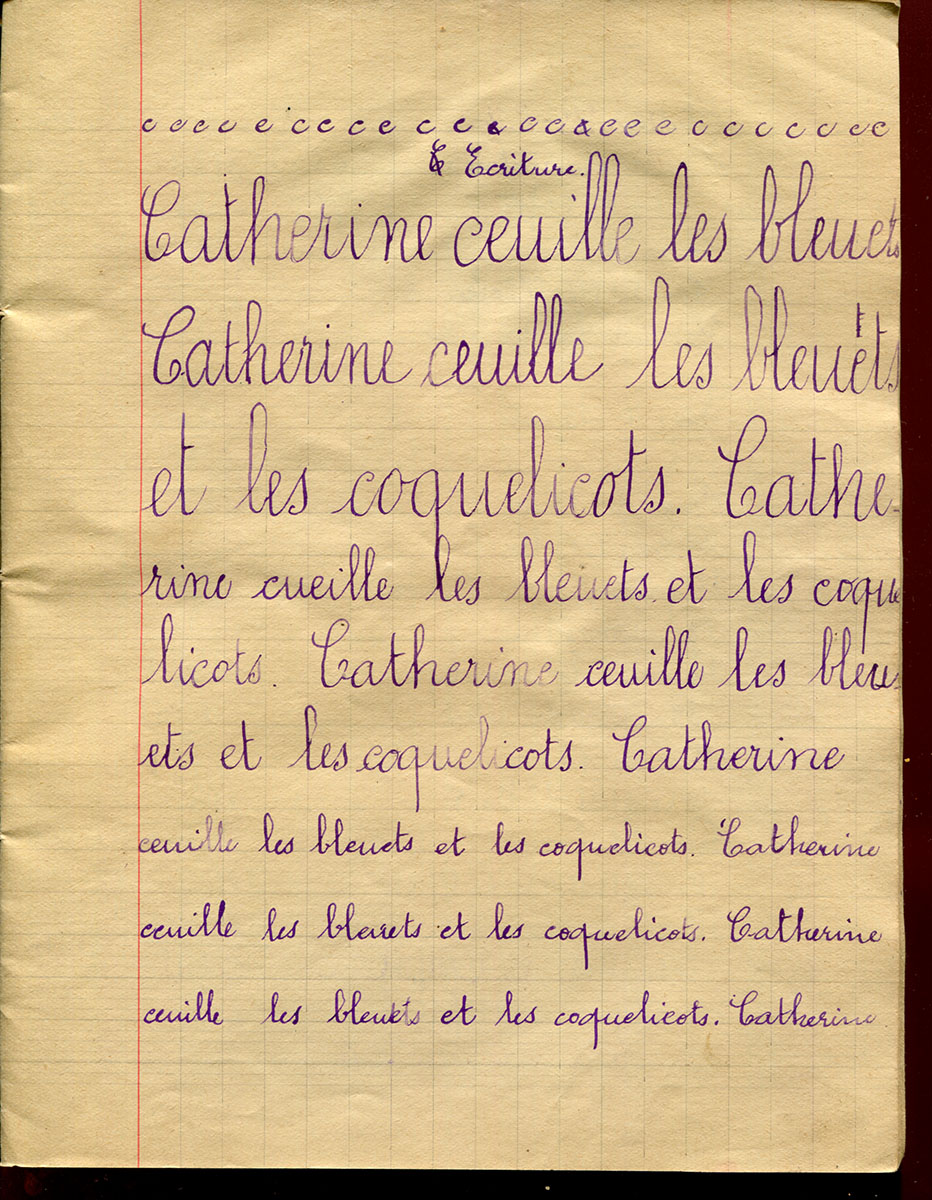 c c c c c c c c c c c c c c c c c c c c c c c c
Ecriture.
Catherine ceuille les bleuets
Catherine ceuille les bleuets
et les coquelicots. Cathe-
rine cueille les bleuets et les coque
licots. Catherine ceuille les bleu-
ets et les coquelicots. Catherine
ceuille les bleuets et les coquelicots. Catherine
ceuille les bleuets et les coquelicots. Catherine
ceuille les bleuets et les coquelicots. Catherine